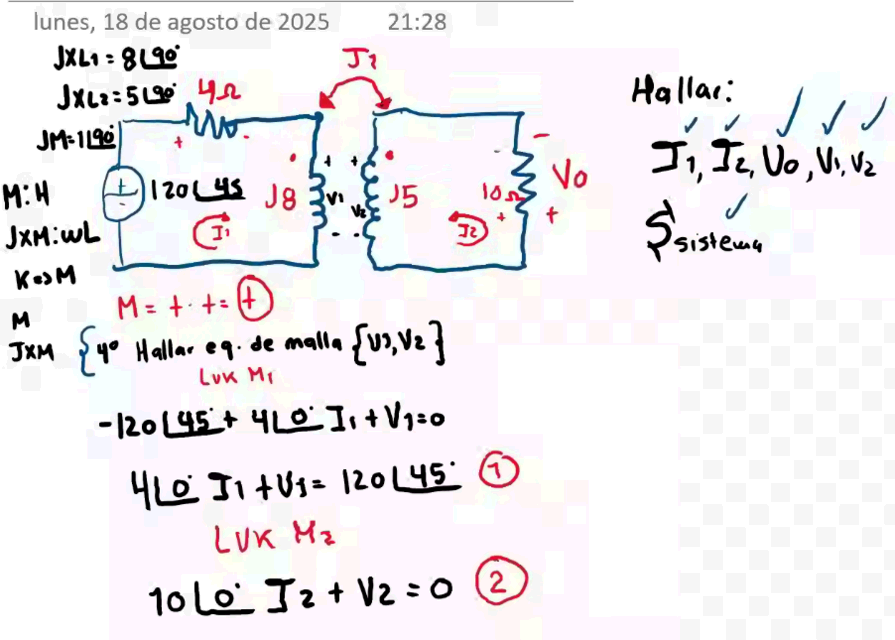 lunes, 18 de agosto de 2025 21:28
JXL1 = 8∠90°
JXL2 = 5∠90°
JM = 1∠90°
M: H
JXM: wL
K => M
M
JXM
4Ω
J1
+ -
120∠45
+
-
I1
J8
+
V1
-
+
V2
-
J5
10Ω
-
+
I2
-
Vo
+
Hallar:
I1, I2, Vo, V1, V2
S sistema
M = + · + = +
4° Hallar eq. de malla {V1, V2}
LVK M1
-120∠45° + 4∠0° I1 + V1 = 0
4∠0° I1 + V1 = 120∠45° 1
LVK M2
10∠0° I2 + V2 = 0 2